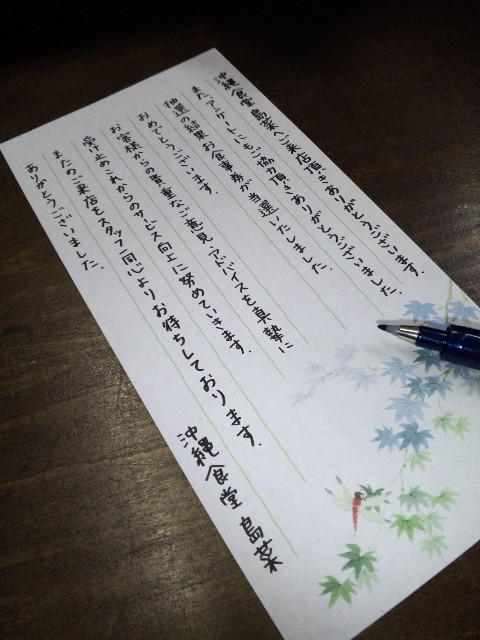 沖縄食堂 島菜へご来店頂きありがとうございます.
また、アンケートにもご協力頂きありがとうございました.
抽選の結果お食事券が当選いたしました.
おめでとうございます.
お客様からの貴重なご意見・アドバイスを真摯に
受け止めこれからのサービス向上に努めていきます.
またのご来店をスタッフ一同心よりお待ちしております.
ありがとうございました.
沖縄食堂 島菜